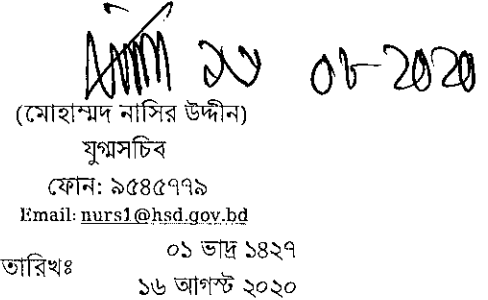 ১৬ ০৮-2020
(মোহাম্মদ নাসির উদ্দীন)
যুগ্মসচিব
ফোন: ৯৫৪৫৭৭৯
Email: nurs1@hsd.gov.bd
তারিখঃ
০১ ভাদ্র ১৪২৭
১৬ আগস্ট ২০২০